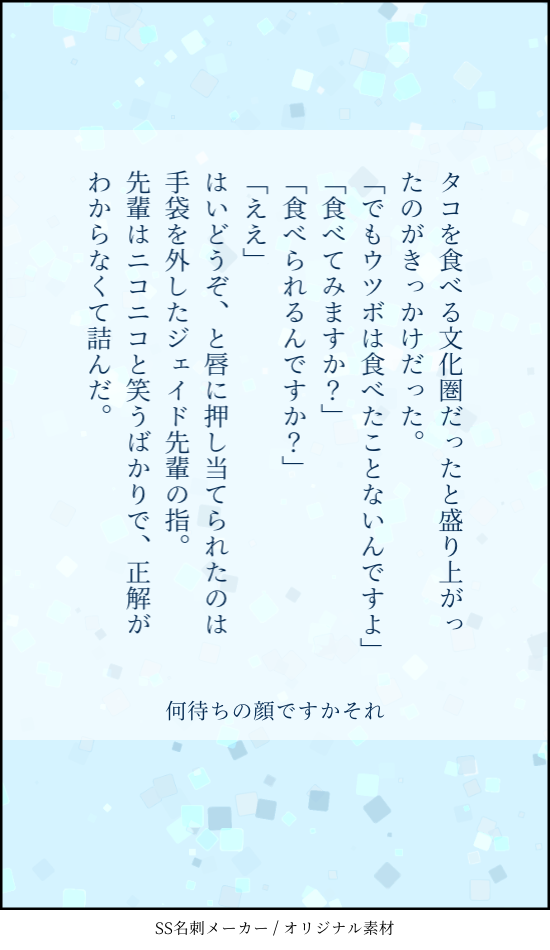 タコを食べる文化圏だったと盛り上がっ
たのがきっかけだった。
「でもウツボは食べたことないんですよ」
「食べてみますか？」
「食べられるんですか？」
「ええ」
はいどうぞ、と唇に押し当てられたのは
手袋を外したジェイド先輩の指。
先輩はニコニコと笑うばかりで、正解が
わからなくて詰んだ。
何待ちの顔ですかそれ
SS名刺メーカー / オリジナル素材